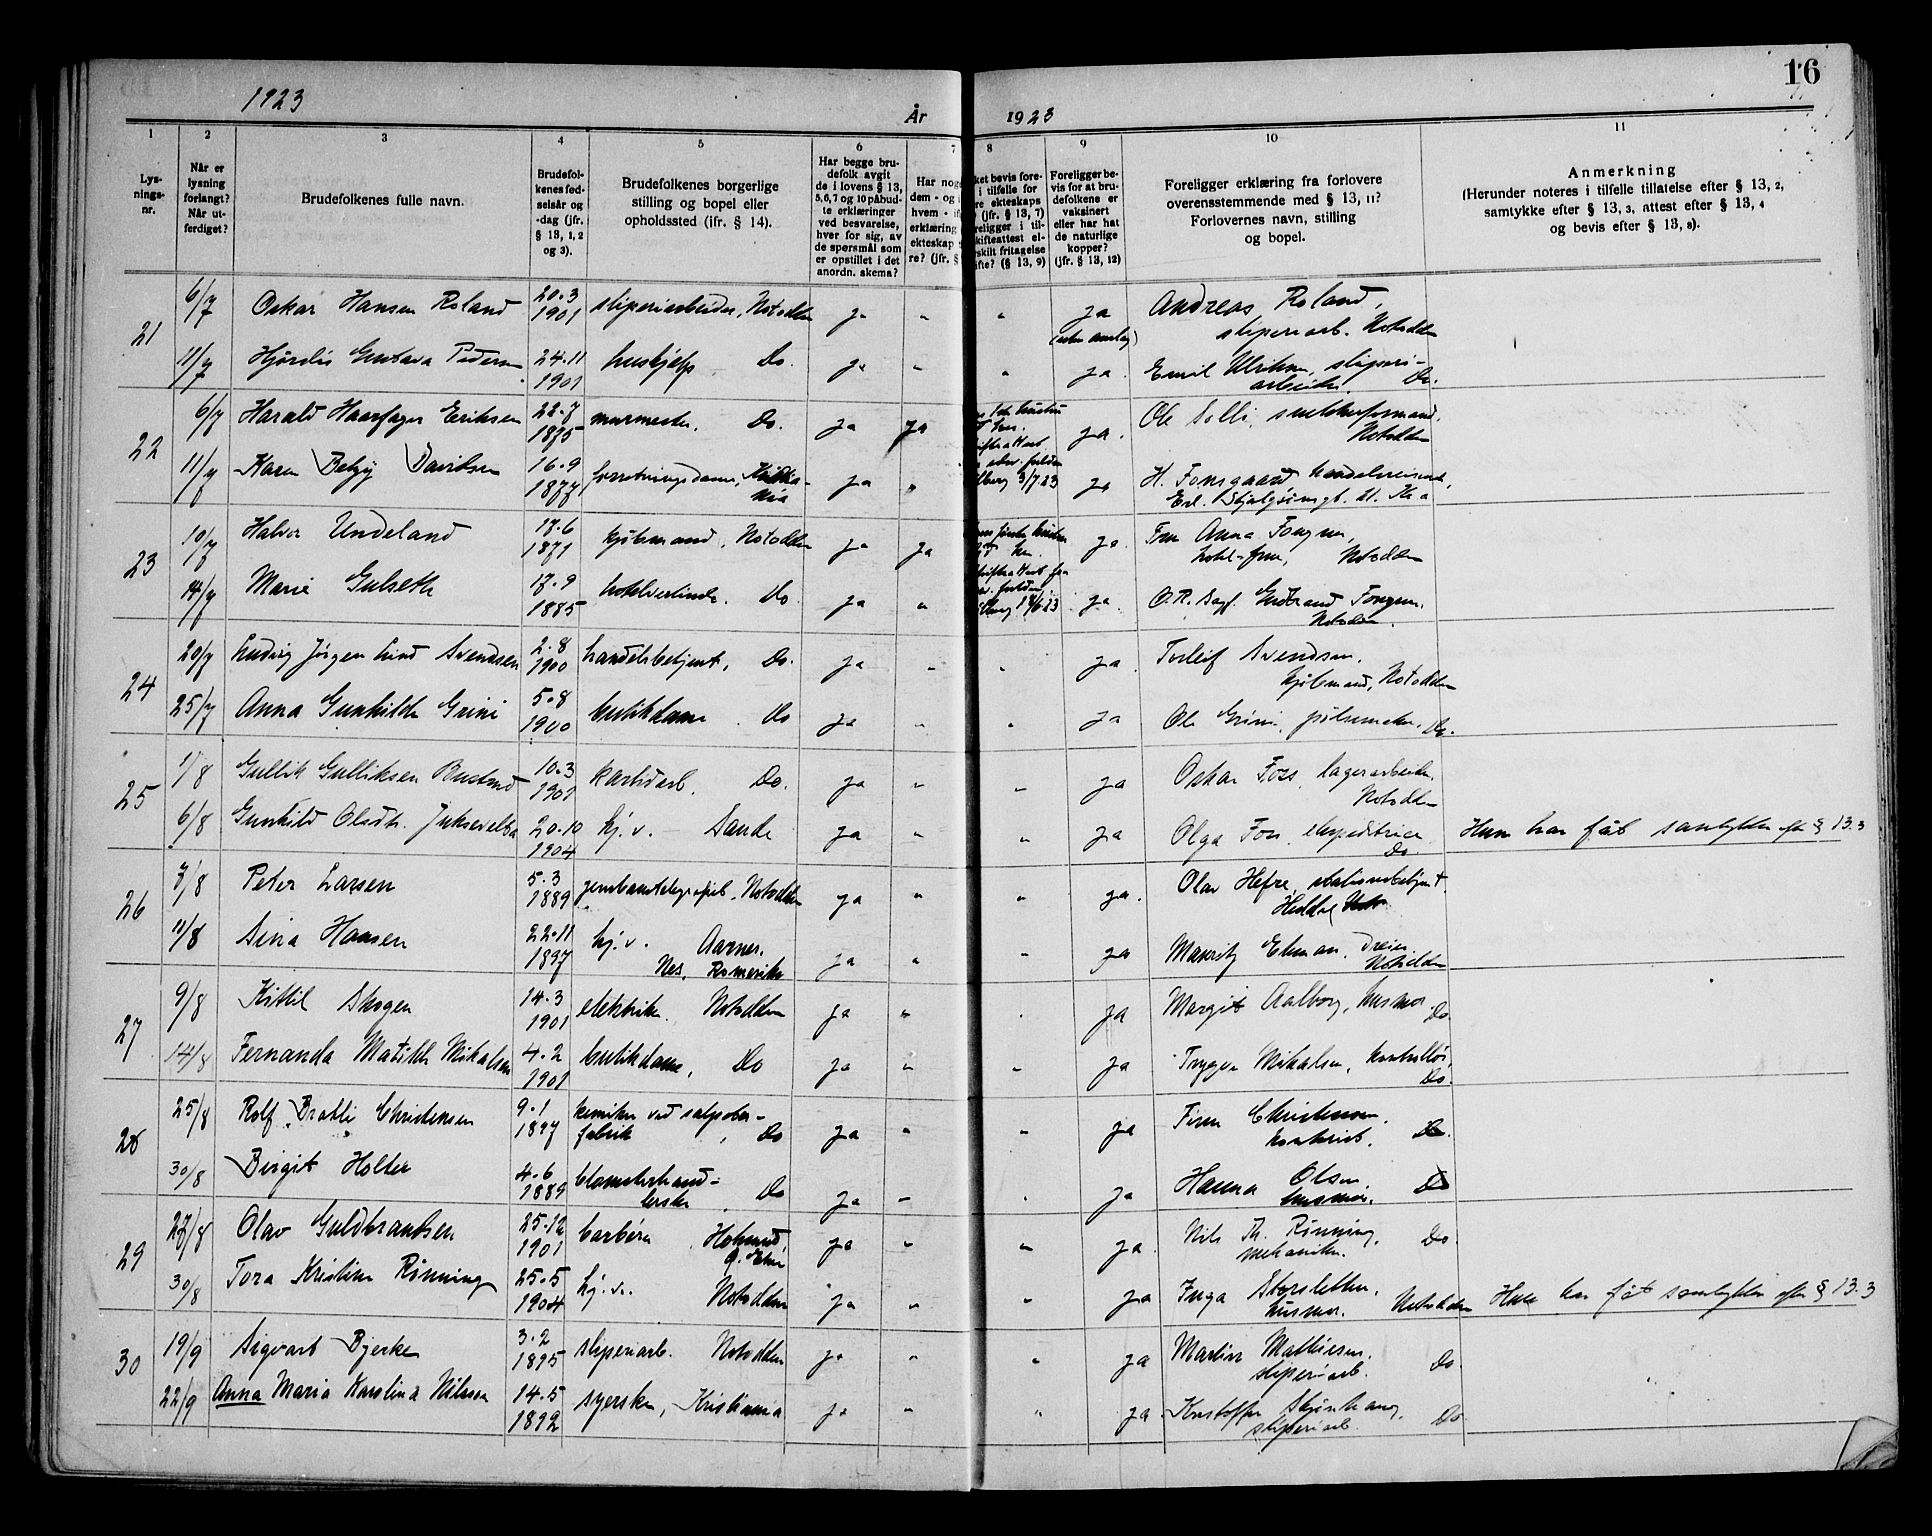 16
1923
År
1923
1 2 3 4 5 6 7 8 9 10 11
Lys-
nings-
nr.
Når er
lysning
forlangt?
Når ut-
ferdiget?
Brudefolkenes fulle navn.
Brudefol-
kenes fød-
selsår og
-dag (jfr.
§ 13, 1, 2
og 3).
Brudefolkenes borgerlige
stilling og bopel eller
opholdssted (ifr. § 14).
Har begge bru-
defolk avgit
de i lovens § 13,
5, 6, 7 og 10 påbud-
te erklæringer
ved besvarelse,
hver for sig, av
de spørsmål som
er opstillet i det
anordn. skema?
Har nog
dem - og i
hvem - if
erklæring
ekteskap
re? (jfr. §
ket bevis fore-
i tilfelle for
re ekteskaps
(jfr. § 13, 7)
religger i til-
kifteattest el-
skilt fritagelse
ifte? (§ 13, 9)
Foreligger be-
vis for at bru-
defolkene er
vaksinert
eller har hat
de naturlige
kopper?
(jfr. § 13, 12)
Foreligger erklæring fra forlovere
overensstemmende med § 13, 11?
Forlovernes navn, stilling
og bopel.
Anmerkning
(Herunder noteres i tilfelle tillatelse efter § 13, 2,
samtykke efter § 13, 3, attest efter § 13, 4
og bevis efter § 13, 8).
21 6/7 Oskar Hansen Roland 20.3 1901 sliperiarbeider, Notodden ja " " ja Andreas Roland,
sliperiarb. Notodden
11/7 Hjørdis Gustava Pedersen 24.11 1901 huskjelp Do. ja " " ja. Emil Ulriksen, sliperi-
arbeider. Do.
22 6/7 Harald Haarfager Eriksen 22.7 1875 murmester, Do. ja ja ja. Ole Solli, snekkerformand.
Notodden
11/7 Karen Betzy Davidsen 16.9 1877 forretningsdame, Kristia-
nia ja " 3/7 23 ja H. Fonsgaard handelsreisende,
23 10/7 Halvor Undeland 17.6 1871 kjøbmand, Notodden ja ja ja Fru Anna Fongen,
hotel-frue, Notodden
14/7 Marie Gulseth 17.9 1885 hotelvertinde. Do ja " ja O.R. sagf. Gudbrand Fongen.
Notodden.
24 20/7 Ludvig Jørgen Lind Svendsen 2.8 1900 handelsbetjent, Do. ja " " ja Torleif Svendsen.
kjøbmand, Notodden
25/7 Anna Gunhilde Grini 5.8 1900 butikdame. Do ja " " ja Ole Grini, pølsemaker. Do.
25 1/8 Gullik Gulliksen Bustnes 10.3 1901 karbidarb. Do. ja " " ja Oskar Foss, lagerarbeider.
Notodden
6/8 Gunhild Olsdtr. 20.10 1904 hj.v. Sande ja " " ja Olga Foss, ekspeditrice
Do
Hun har fåt samtykke efter § 13.3
26 7/8 Peter Larsen 5.3 1889 jernbanetelegrafist, Notodden ja " " ja. Olav Hefre, stationsbetjent
Heddal
11/8 Sina Hansen 22.11 1897 hj.v. Aarnes.
Nes, Romerike ja " " ja Mauritz Ekman. Dreier
Notodden
27 9/8 Kittil Skogen 14.3 1901 elektriker. Notodden ja " " ja Margit Aalborg, husmor. Do.
14/8 Fernanda Matilde Mikalsen 4.2 1901 butikdame, Do ja " " ja Trygve Mikalsen, kontrollør
Do.
28 25/8 Rolf Bratli Christensen 9.1 1897 kemiker ved salpeter-
fabrik, Do ja " " ja Finn Christensen.
kontorist. Do.
30/8 Birgit Holter 4.6 1889 blomsterhand-
lerske, Do ja " " ja Hanna Olsen.
husmor. Do
29 27/8 Olav Guldbrandsen 25.12 1901 barbèrer Holmsund,
Ø. Eiker ja " " ja. Nils Th. Rønning,
mekaniker. Do.
30/8 Tora Kristine Rønning 25.5 1904 hj.v. Notodden ja " " ja Inga Storsletten.
husmor. Notodden
Hun har fåt samtykke efter § 13.3
30 19/9 Sigvart Bjerke 3.2 1895 sliperiarb. Notodden ja " " ja Martin Mathiesen.
sliperiarb. Do.
22/9 Anna Maria Karolina Nilsson 14.5 1892 syerske, Kristiania ja " " ja Kristoffer Skjønhaug,
sliperiarb. Do